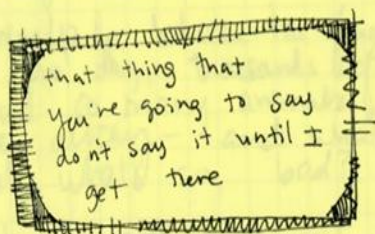 that thing that
you're going to say
don't say it until I
get here